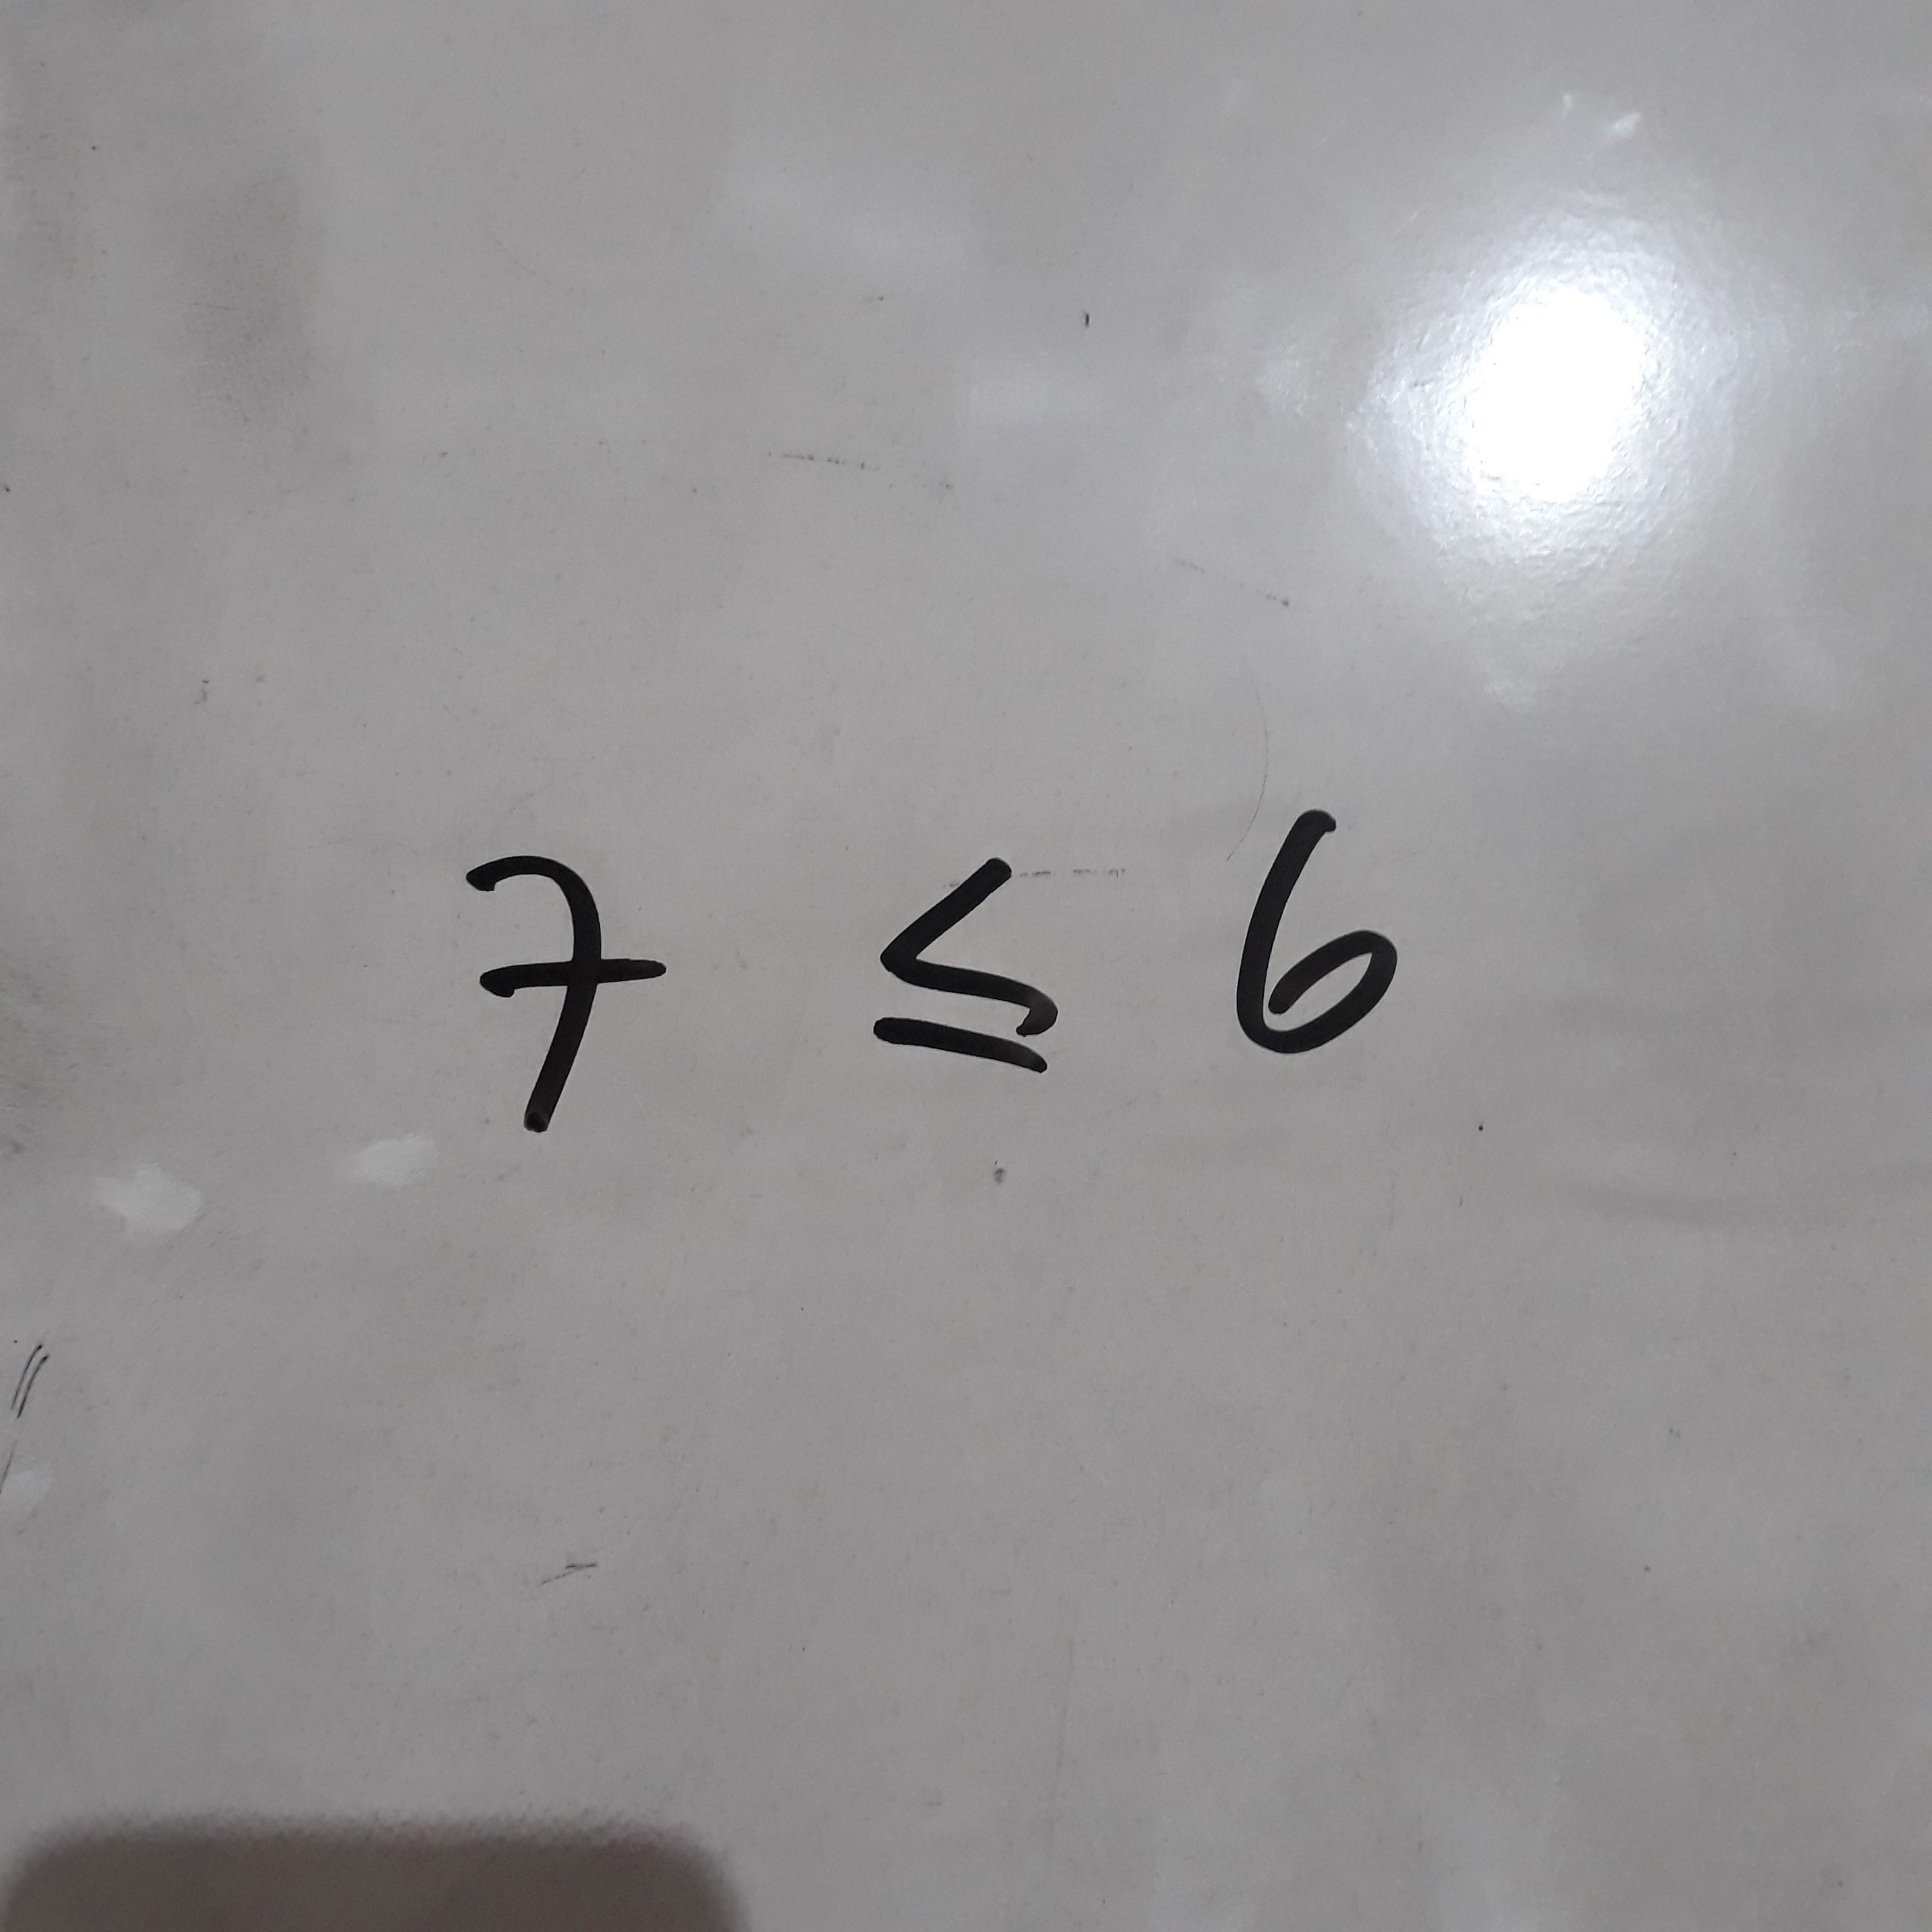 7 ≤ 6